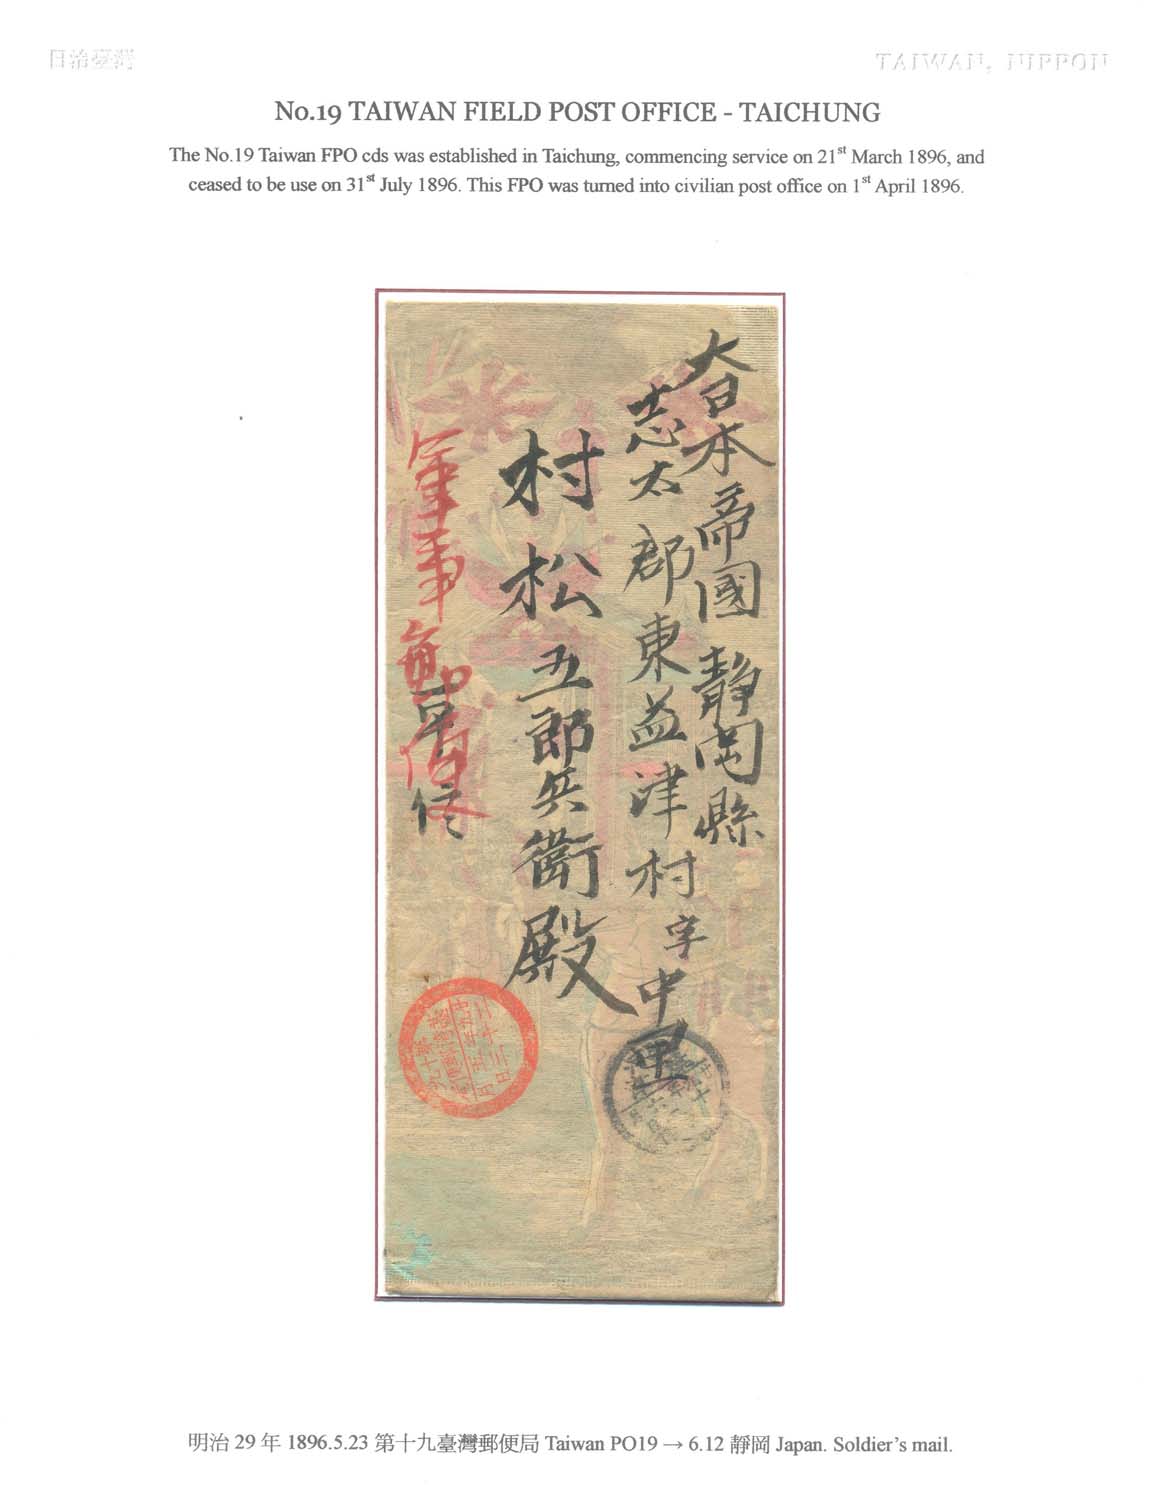 日治臺灣
TAIWAN, NIPPON
No.19 TAIWAN FIELD POST OFFICE - TAICHUNG
The No.19 Taiwan FPO cds was established in Taichung, commencing service on 21st March 1896, and
ceased to be use on 31st July 1896. This FPO was turned into civilian post office on 1st April 1896.
大日本帝國靜岡縣
志太郡東益津村字中里
村松五郎兵衛殿
軍事郵便
明治 29 年 1896.5.23 第十九臺灣郵便局 Taiwan PO19 → 6.12 靜岡 Japan. Soldier's mail.